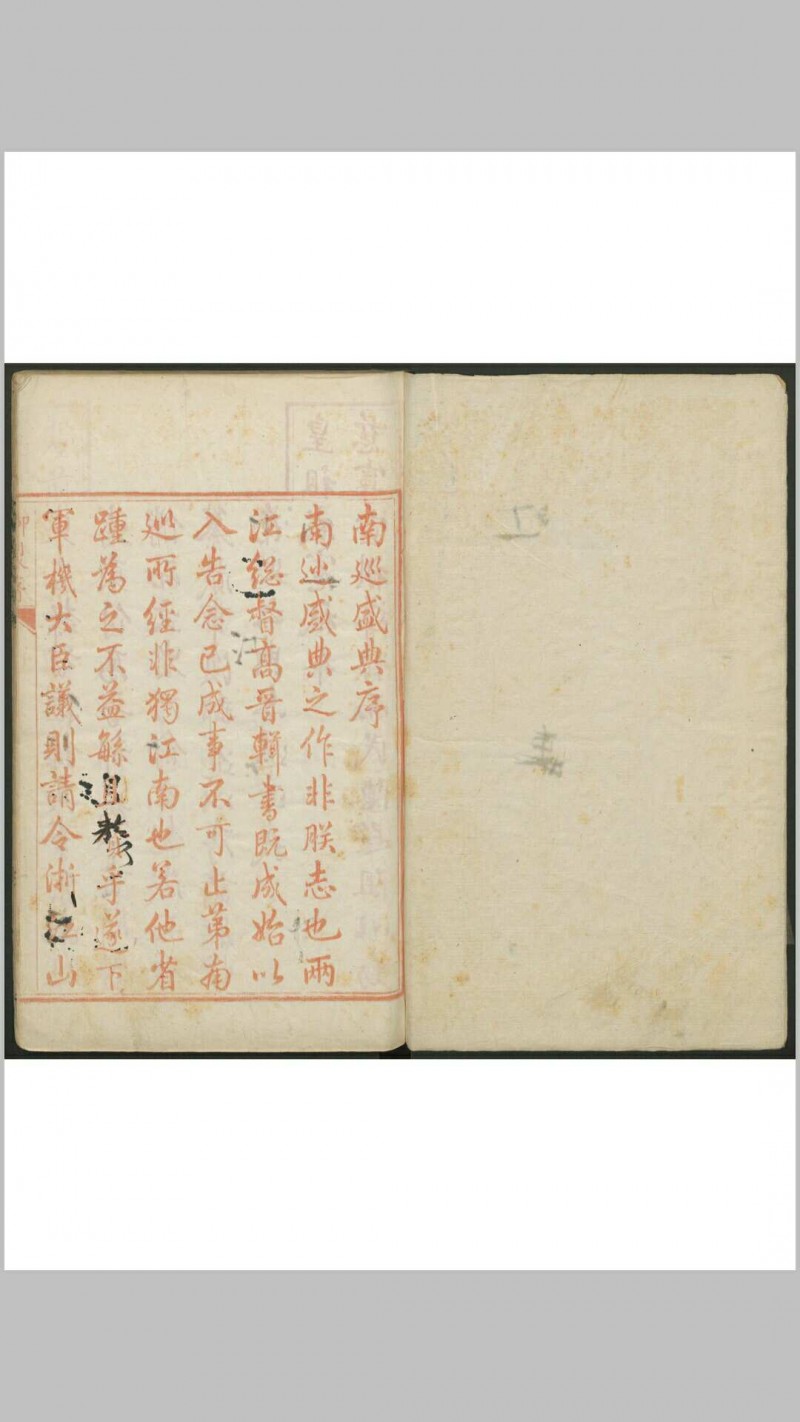 南巡盛典序
南巡盛典之作非朕志也兩
江總督高晉輯書既成始以
入告念已成事不可止第南
巡所經非獨江南也若他省
踵為之不益繇且乎遂下
軍機大臣議則請令浙江山